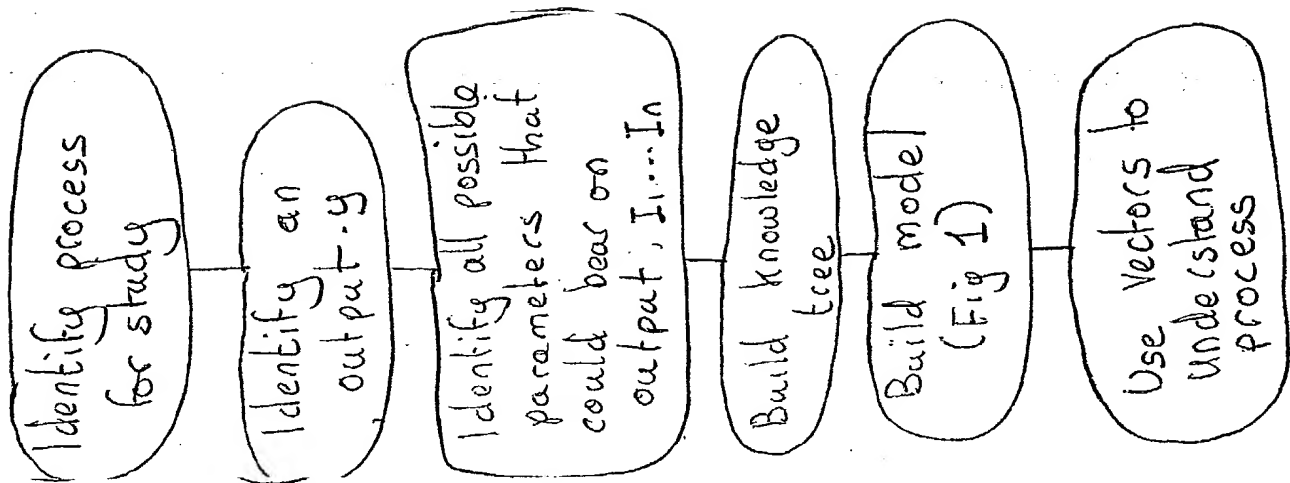 Identify process
for study
Identify an
output-y
Identify all possible
parameters that
could bear on
output, I1...In
Build knowledge
tree
Build model
(Fig 1)
Use vectors to
understand
process